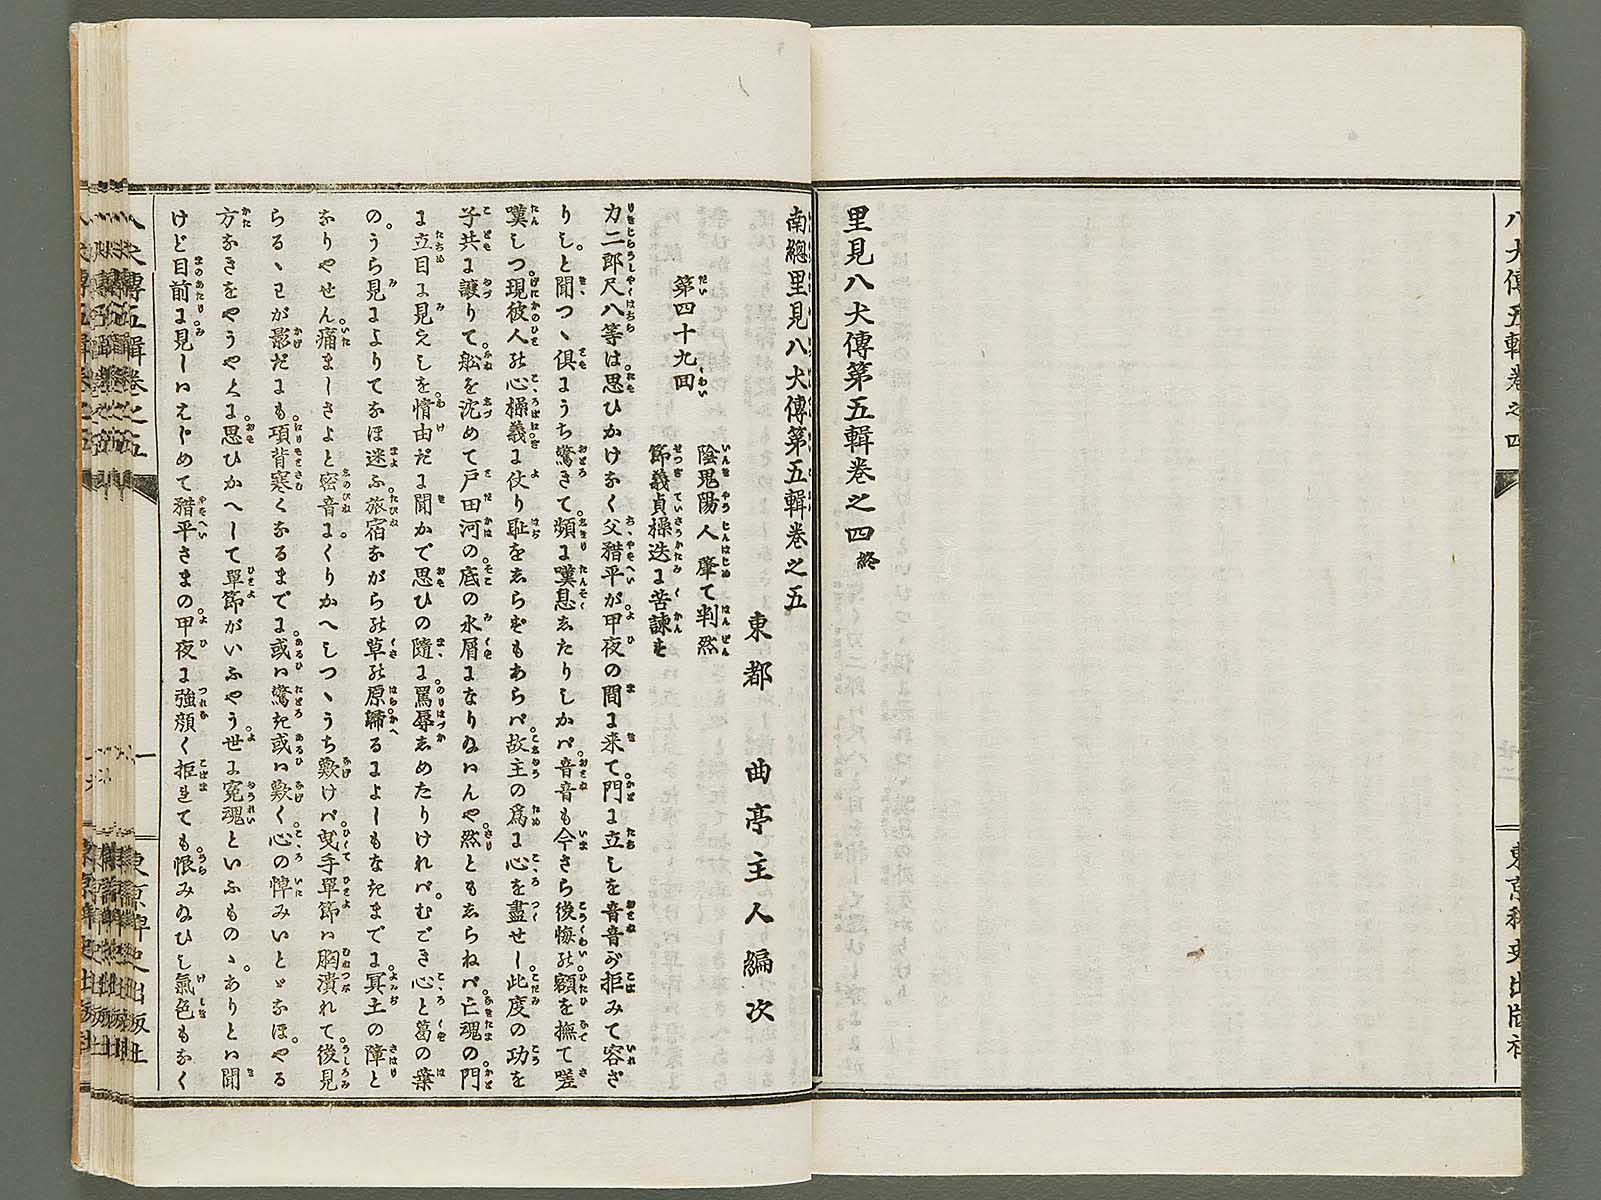 八犬傳五輯卷之四
東京稗史出版社
里見八犬傳第五輯卷之四終
南總里見八犬傳第五輯卷之五
東都 曲亭主人編次
第四十九回
陰鬼陽人肇て判然
節義貞操迭に苦諫す
力二郎尺八等は思ひかけなく父猎平が甲夜の間に来て門に立しを音音が拒みて容ざ
りし。と聞つゝ倶にうち驚きて頻に嘆息したりしかバ。音音も今さら後悔の額を撫て嗟
嘆しつ現彼人の心操義に仗り耻をしらずもあらバ。故主の爲に心を盡せし此度の功を
子共に讓りて舩を沈めて戸田河の底の水屑になりぬハんや然ともしらねバ亡魂の門
に立目に見えしを情由だに聞かで思ひの隨に罵辱しめたりけれバ。むごき心と葛の葉
の。うら見によりてなほ迷ふ旅宿ながらの草の原歸るによしもなきまでに冥土の障と
なりやせん痛ましさよと密音にくりかへしつゝうち歎けバ曳手單節ハ胸潰れて後見
らるゝわが影だにも項背寒くなるまでに或ハ驚き或ハ歎く心の悼みいとゞなほ。やる
方なきをやうやくに思ひかへして單節がいふやう世に冤魂といふものゝありとハ聞
けど目前に見しハえじめて猎平さまの甲夜に強顔く拒れても恨みぬひし氣色もなく
一
東京稗史出版社